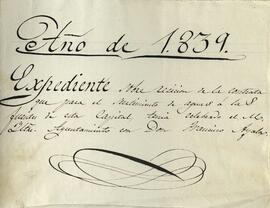 Año de 1.839.
Expediente sobre recision de la contrata
que para el surtimiento de aguas a la S
fuentes de esta Capital, tenia celebrado el M.
Iltre. Ayuntamiento con Don Francisco Ayala.